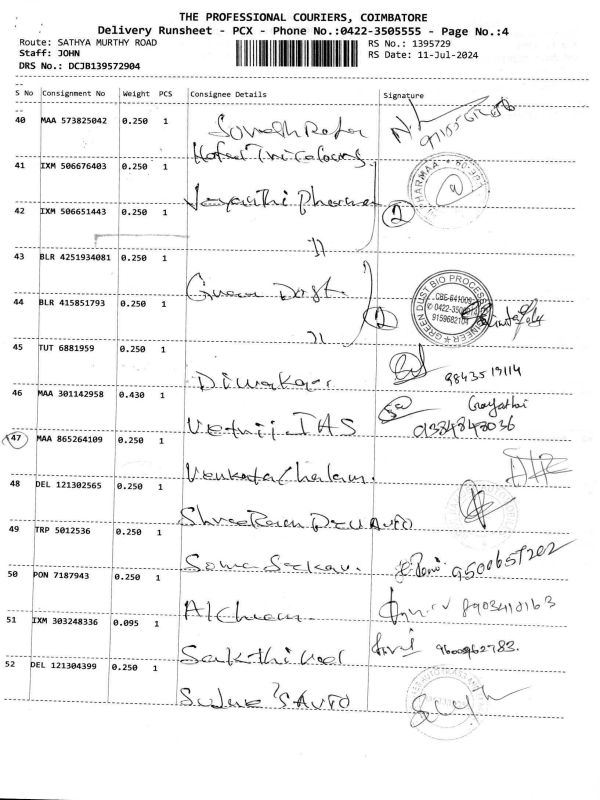 THE PROFESSIONAL COURIERS, COIMBATORE
Delivery Runsheet - PCX - Phone No.:0422-3505555 - Page No.:4
Route: SATHYA MURTHY ROAD RS No.: 1395729
Staff: JOHN RS Date: 11-Jul-2024
DRS No.: DCJB139572904
S No Consignment No Weight PCS Consignee Details Signature
40 MAA 573825042 0.250 1
41 IXM 506676403 0.250 1 Jayanthi Pharma
42 IXM 506651443 0.250 1 〃 2
43 BLR 4251934081 0.250 1 Green Dust
44 BLR 415851793 0.250 1 〃 2 GREEN DUST BIO PROCESS
CBE-641009
9159682104
45 TUT 6881959 0.250 1 Diwakar 9843519114
46 MAA 301142958 0.430 1 Vetrii IAS Gayathri
47 MAA 865264109 0.250 1 Venkatachalam
48 DEL 121302565 0.250 1 Shree Ram Auto
49 TRP 5012536 0.250 1 9500657202
50 PON 7187943 0.250 1 8903410163
51 IXM 303248336 0.095 1 Sakthivel 9600962783.
52 DEL 121304399 0.250 1 Auto